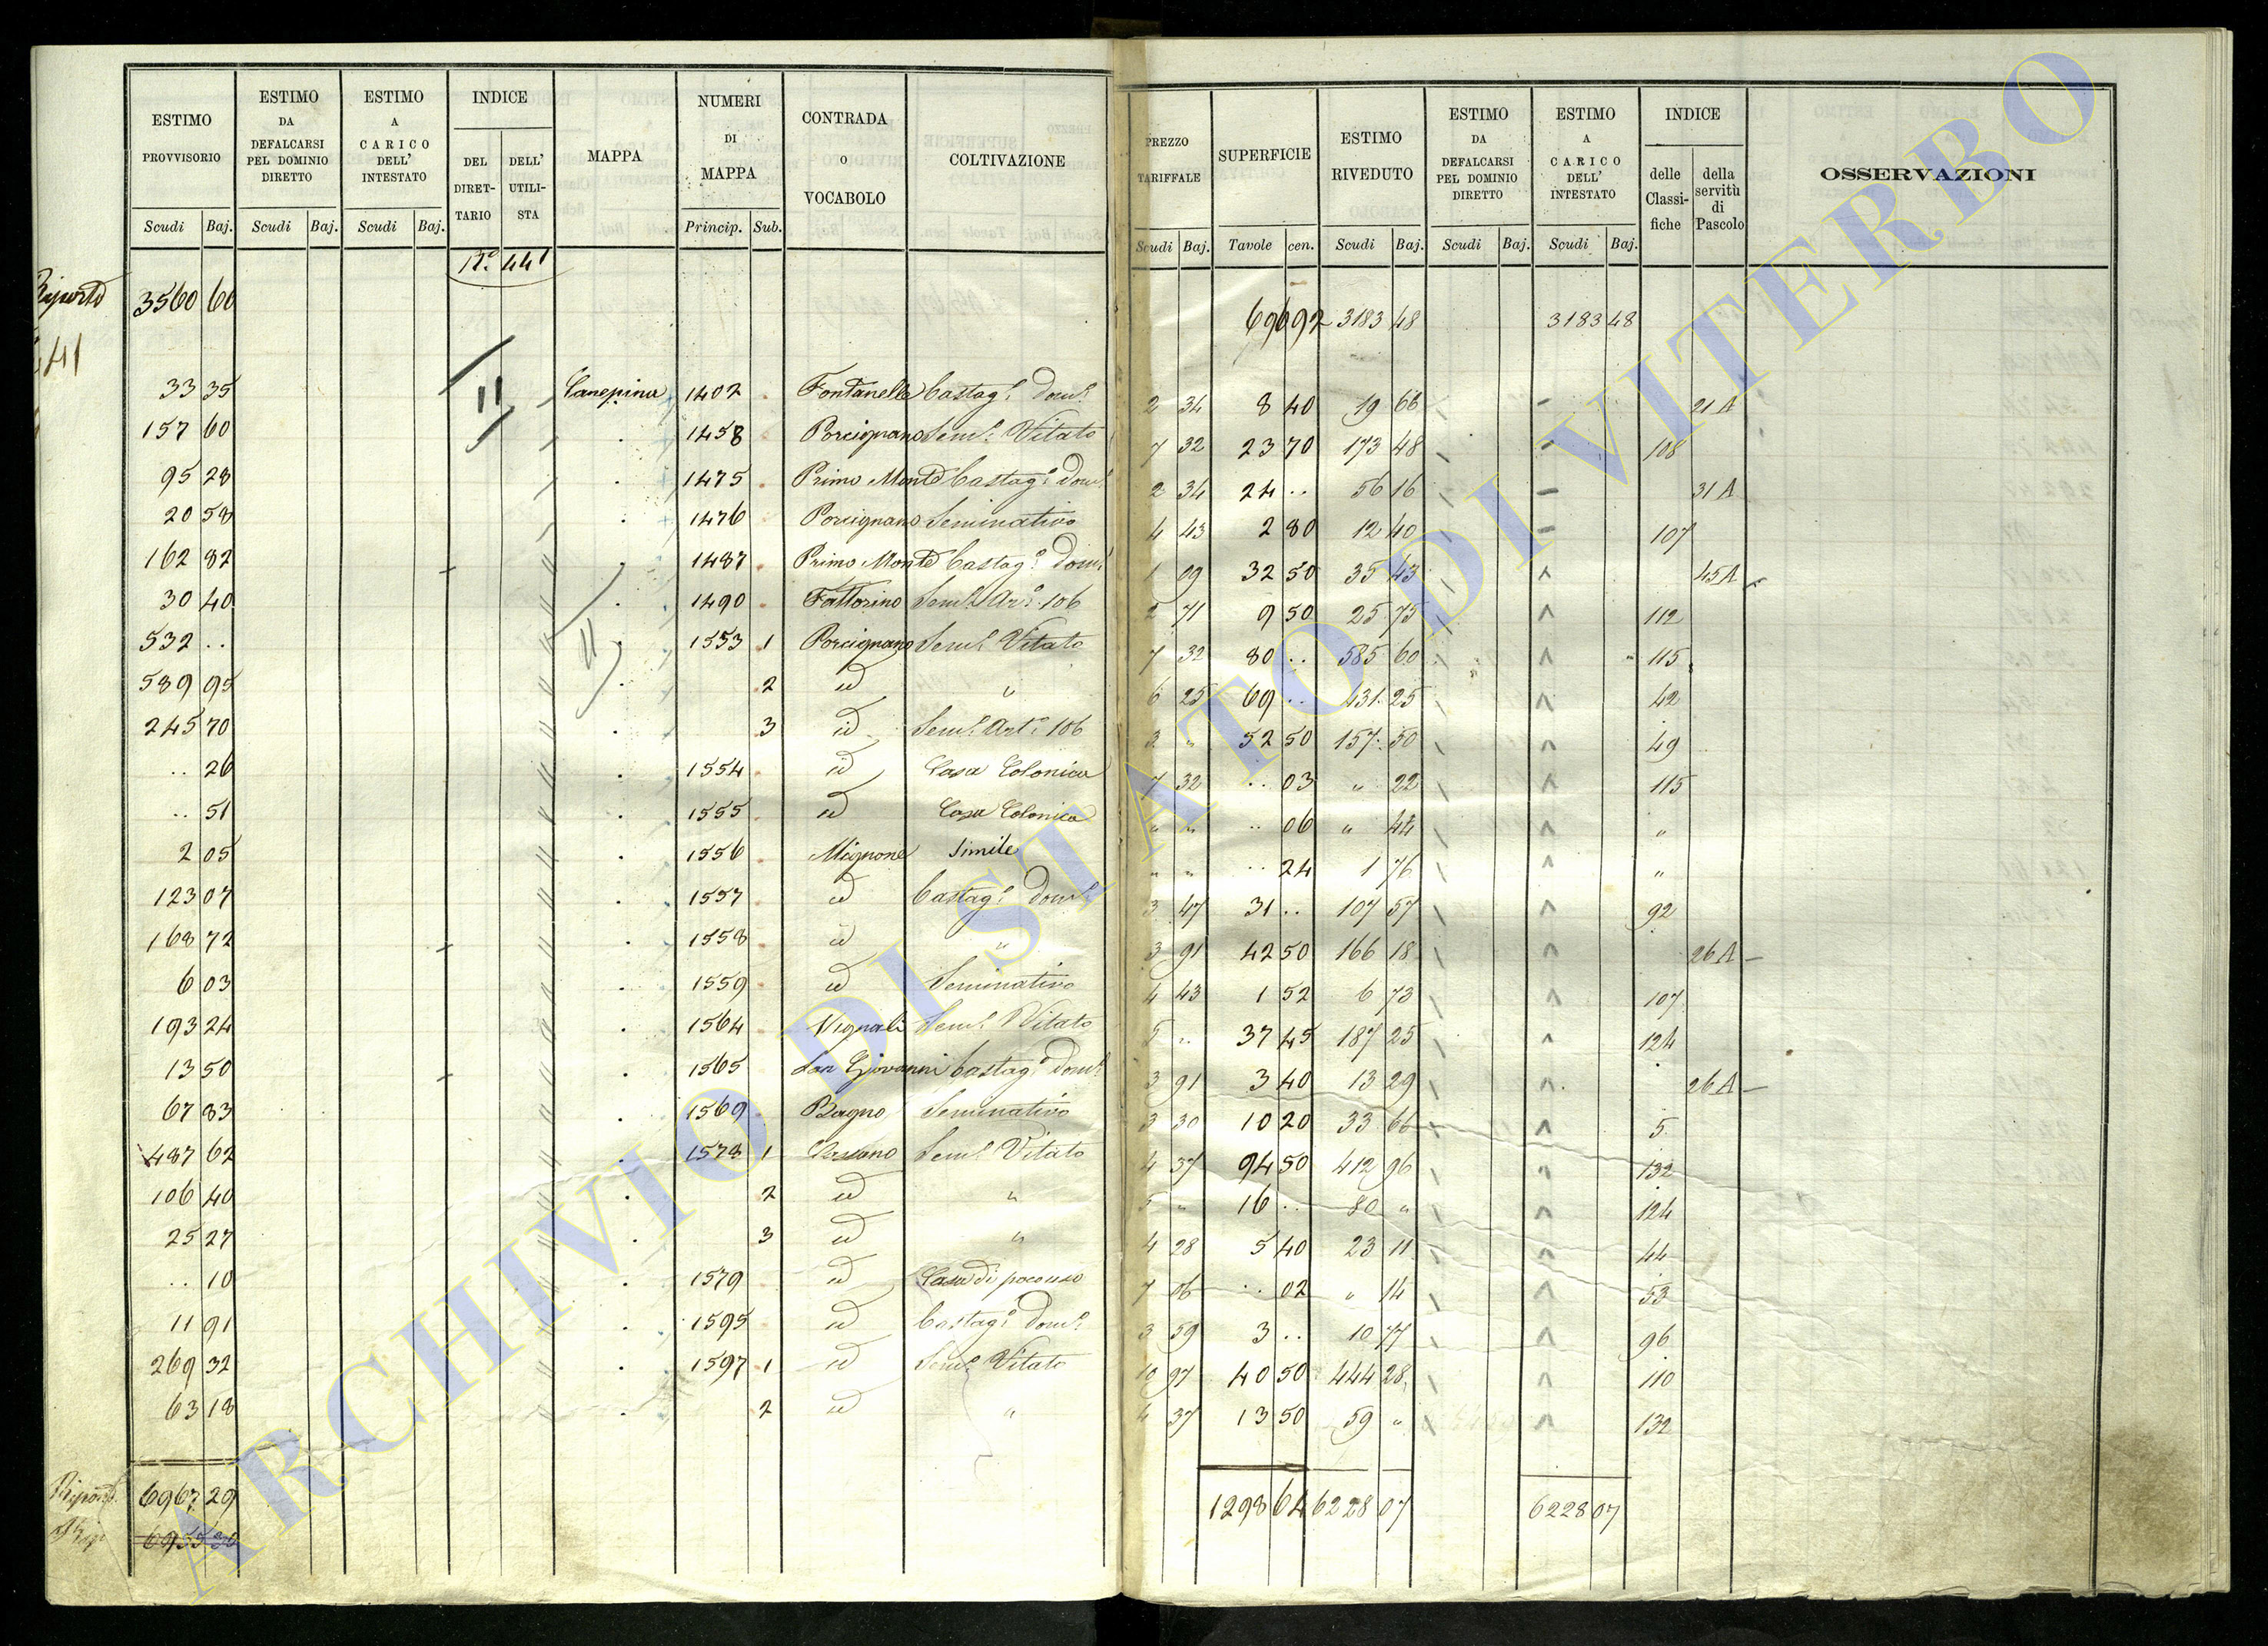 ESTIMO PROVVISORIO
ESTIMO DA DEFALCARSI PEL DOMINIO DIRETTO
ESTIMO A CARICO DELL' INTESTATO
INDICE
DEL DIRETTARIO
DELL' UTILISTA
MAPPA
NUMERI DI MAPPA
CONTRADA o VOCABOLO
COLTIVAZIONE
PREZZO TARIFFALE
SUPERFICIE
ESTIMO RIVEDUTO
ESTIMO DA DEFALCARSI PEL DOMINIO DIRETTO
ESTIMO A CARICO DELL' INTESTATO
INDICE
delle Classifiche
della servitù di Pascolo
OSSERVAZIONI
Scudi Baj. Scudi Baj. Scudi Baj. Princip. Sub. Scudi Baj. Tavole cen. Scudi Baj. Scudi Baj. Scudi Baj.
N.º 441
Riporto 3560 60 696 92 3183 48 3183 48
441
33 35 Canepina 1402 Fontanella Castag.º Dom.º 2 34 8 40 19 66 21 A
157 60 1458 Porcignano Sem.º Vitato 7 32 23 70 173 48 108
95 28 1475 Primo Monte Castag.º Dom.º 2 34 24 .. 56 16 31 A
20 58 1476 Porcignano Seminativo 4 43 2 80 12 40 107
162 82 1487 Primo Monte Castag.º Dom.º 1 09 32 50 35 43 45 A
30 40 1490 Fattorino Sem.º Ar.º 106 2 71 9 50 25 75 112
532 .. 1553 1 Porcignano Sem.º Vitato 7 32 80 .. 585 60 115
589 95 2 id " 6 25 69 .. 431 25 42
245 70 3 id Sem.º Art.º 106 3 " 52 50 157 50 49
.. 26 1554 id Casa Colonica 7 32 .. 03 " 22 115
.. 51 1555 id Casa Colonica " " .. 06 " 44 "
2 05 1556 Mignone Simile " " .. 24 1 76 "
123 07 1557 id Castag.º Dom.º 3 47 31 .. 107 57 92
168 72 1558 id " 3 91 42 50 166 18 26 A
6 03 1559 id Seminativo 4 43 1 52 6 73 107
193 24 1564 Vignali Sem.º Vitato 5 .. 37 45 187 25 124
13 50 1565 San Giovanni Castag.º Dom.º 3 91 3 40 13 29 26 A
67 83 1569 Bagno Seminativo 3 30 10 20 33 66 5
487 62 1578 1 Cassano Sem.º Vitato 4 37 94 50 412 96 132
106 40 2 id " 5 " 16 .. 80 " 124
25 27 3 id " 4 28 5 40 23 11 44
.. 10 1579 id Casa di poco uso 7 06 .. 02 " 14 53
11 91 1595 id Castag.º Dom.º 3 59 3 .. 10 77 96
269 32 1597 1 id Sem.º Vitato 10 97 40 50 444 28 110
63 18 2 id " 4 37 13 50 59 " 132
6967 29 1298 64 6228 07 6228 07
6955 30
ARCHIVIO DI STATO DI VITERBO